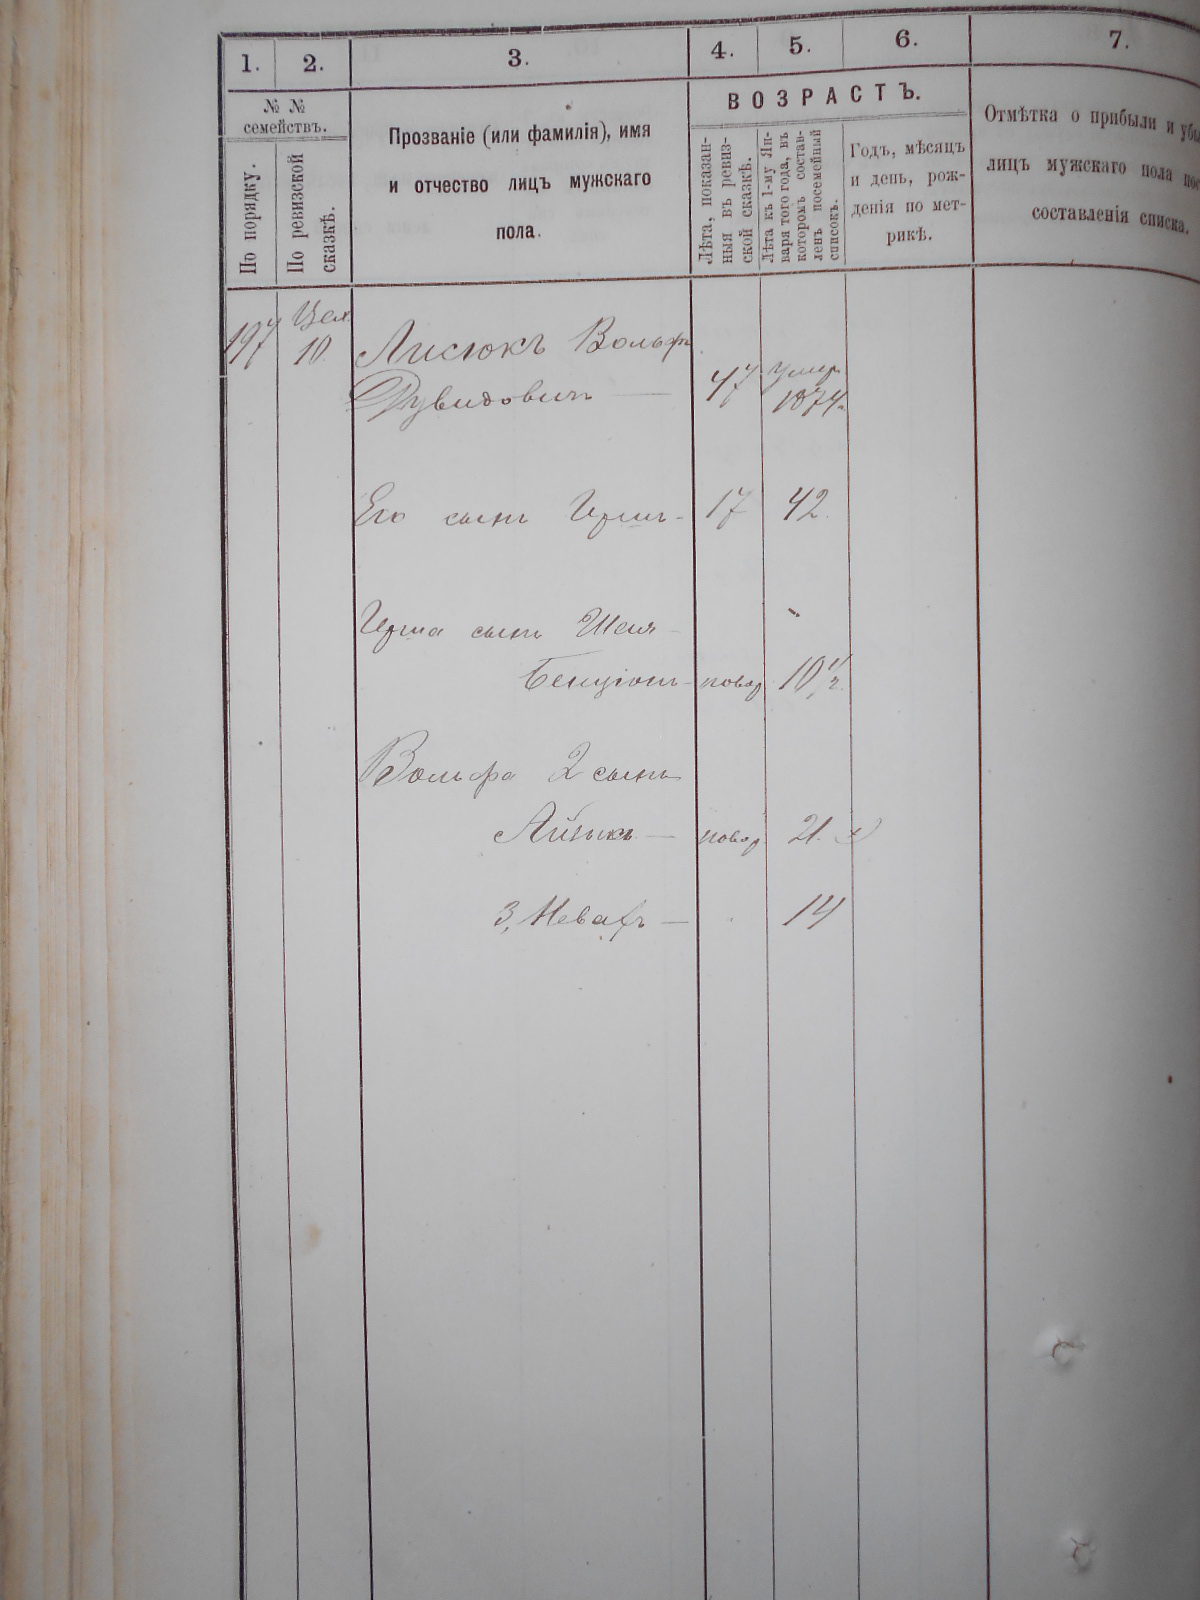 1. 2. 3. 4. 5. 6. 7.
№ №
семействъ.
По порядку.
По ревизской
сказкѣ.
Прозваніе (или фамилія), имя
и отчество лицъ мужскаго
пола.
ВОЗРАСТЪ.
Лѣта, показан-
ныя въ ревиз-
ской сказкѣ.
Лѣта къ 1-му Ян-
варя того года, въ
которомъ состав-
ленъ посемейный
списокъ.
Годъ, мѣсяцъ
и день, рож-
денія по мет-
рикѣ.
Отмѣтка о прибыли и
лицъ мужскаго пола
составленія списка.
197 Цех. 10. Лисюкъ Вольфъ
Дувидовичъ — 47 умер. 1874.
Его сынъ Гершъ - 17 42.
Герша сынъ Шая -
Бенціонъ - новор 10 1/2.
Вольфа 2 сынъ
Айзикъ — новор. 21.
3, Невахъ — 14